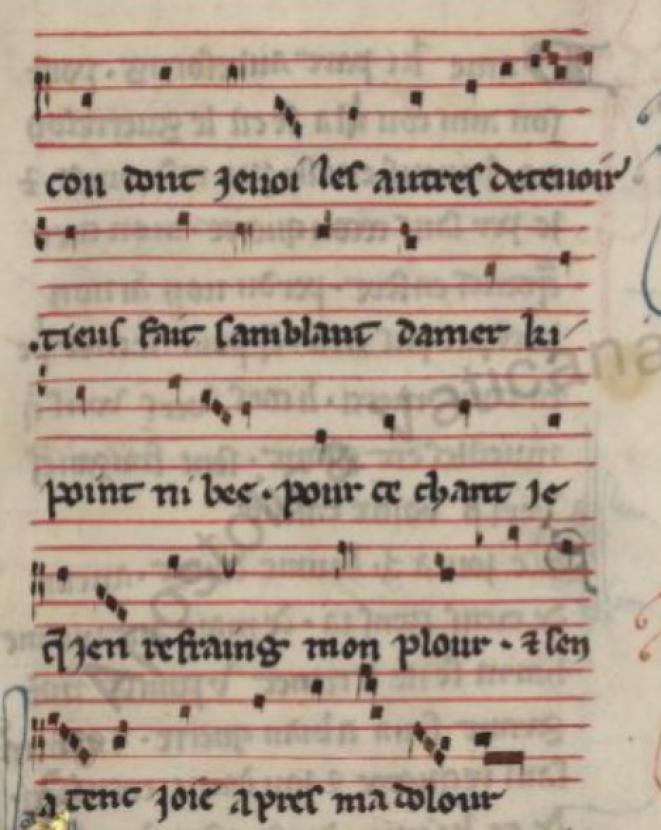 cou dont jenoi les autres decevoir
.tieus fait samblant damer ki
point ni bee. pour ce chant je
q̃ jen refraing mon plour. ⁊ sen
atenc joie apres ma dolour